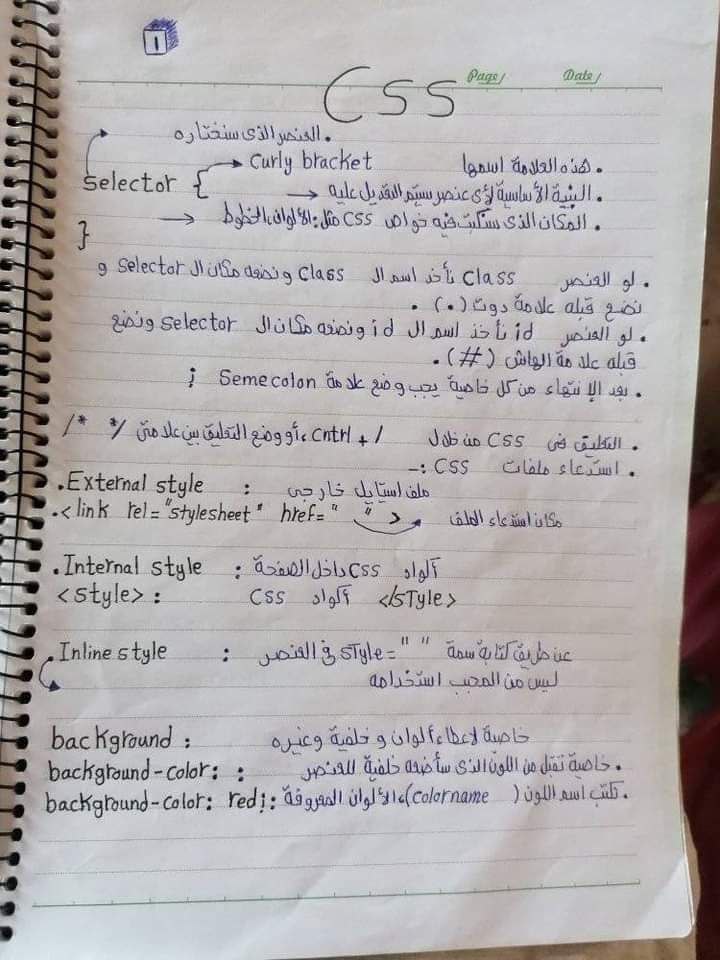 1
Page/ Date/
CSS
. العنصر الذى سنختاره
. هذه العلامة اسمها Curly bracket
selector {
. البنية الأساسية لأى عنصر سيتم التعديل عليه
. المكان الذى ستكتب فيه خواص CSS مثل: الألوان، الخطوط
}
. لو العنصر Class نأخذ اسم ال Class ونضعه مكان ال Selector و
نضع قبله علامة دوت (.) .
. لو العنصر id نأخذ اسم ال id ونضعه مكان ال selector ونضع
قبله علامة الهاش (#).
. بعد الإنتهاء من كل خاصية يجب وضع علامة Semecolon ;
. التعليق فى CSS من خلال Cntrl + /، أو وضع التعليق بين علامتى /* */
. استدعاء ملفات CSS :-
. External style : ملف استايل خارجى
. <link rel="stylesheet" href=" " > مكان استدعاء الملف
. Internal style : أكواد CSS داخل الصفحة
<style> : أكواد CSS </sTyle>
. Inline style : عن طريق كتابة سمة sTyle=" " فى العنصر
ليس من المحبب استخدامه
background : خاصية لاعطاء ألوان و خلفية وغيره
background-color: : . خاصية تقبل من اللون الذى سأضعه خلفية للعنصر
background-color: red;: . نكتب اسم اللون (colorname)، الألوان المعروفة